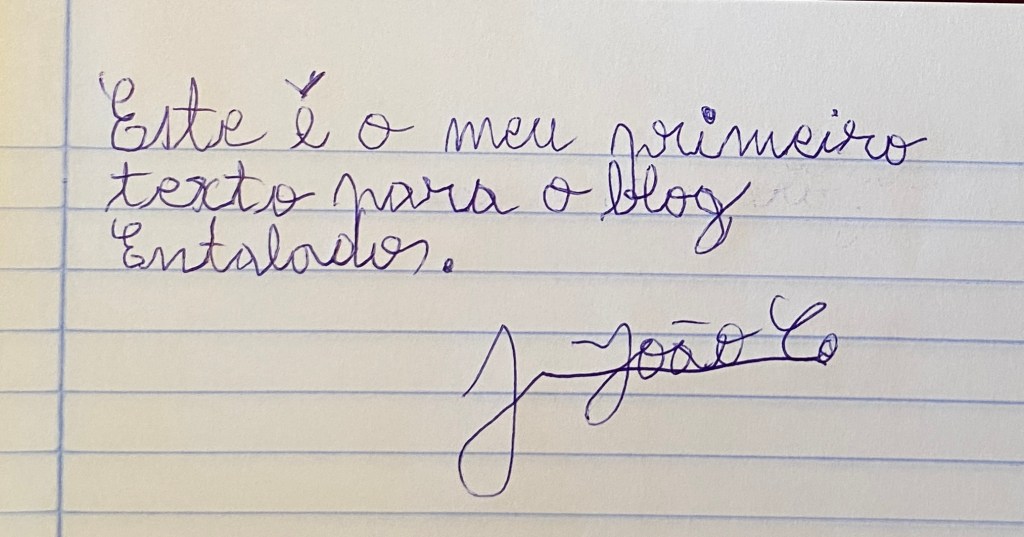 Este é o meu primeiro
texto para o blog
Entalados.
J João C.